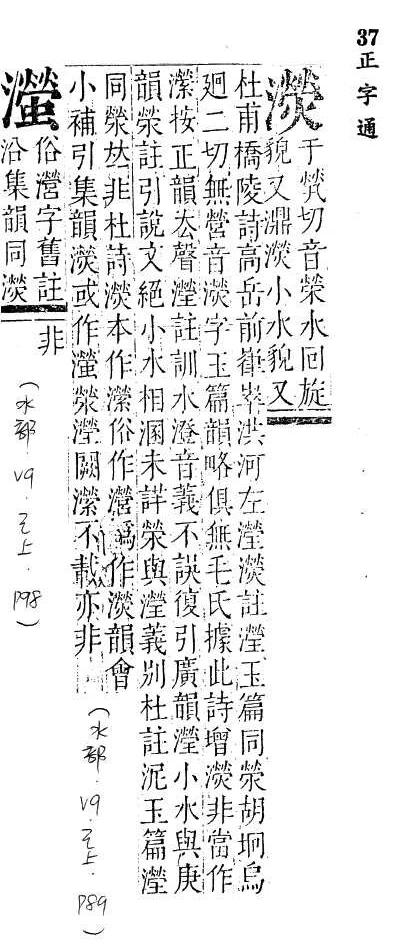 37正字通
濙
于煢切音榮水回旋
貌又濎濙小水貌又
杜甫橋陵詩高岳前嵂崒洪河左瀅濙註瀅玉篇同滎胡坰烏
迥二切無營音濙字玉篇韻略俱無毛氏據此詩增濙非當作
濴按正韻去聲瀅註訓水澄音義不誤復引廣韻瀅小水與庚
韻滎註引說文絕小水相溷未詳滎與瀅義別杜註泥玉篇瀅
同滎𠀤非杜詩濙本作濴俗作瀯譌作濙韻會
小補引集韻濙或作滎瀅闕濴不載亦非
(水部.V9.巳上.P89)
俗瀯字舊註
沿集韻同濙
非
(水部.V9.巳上.P98)